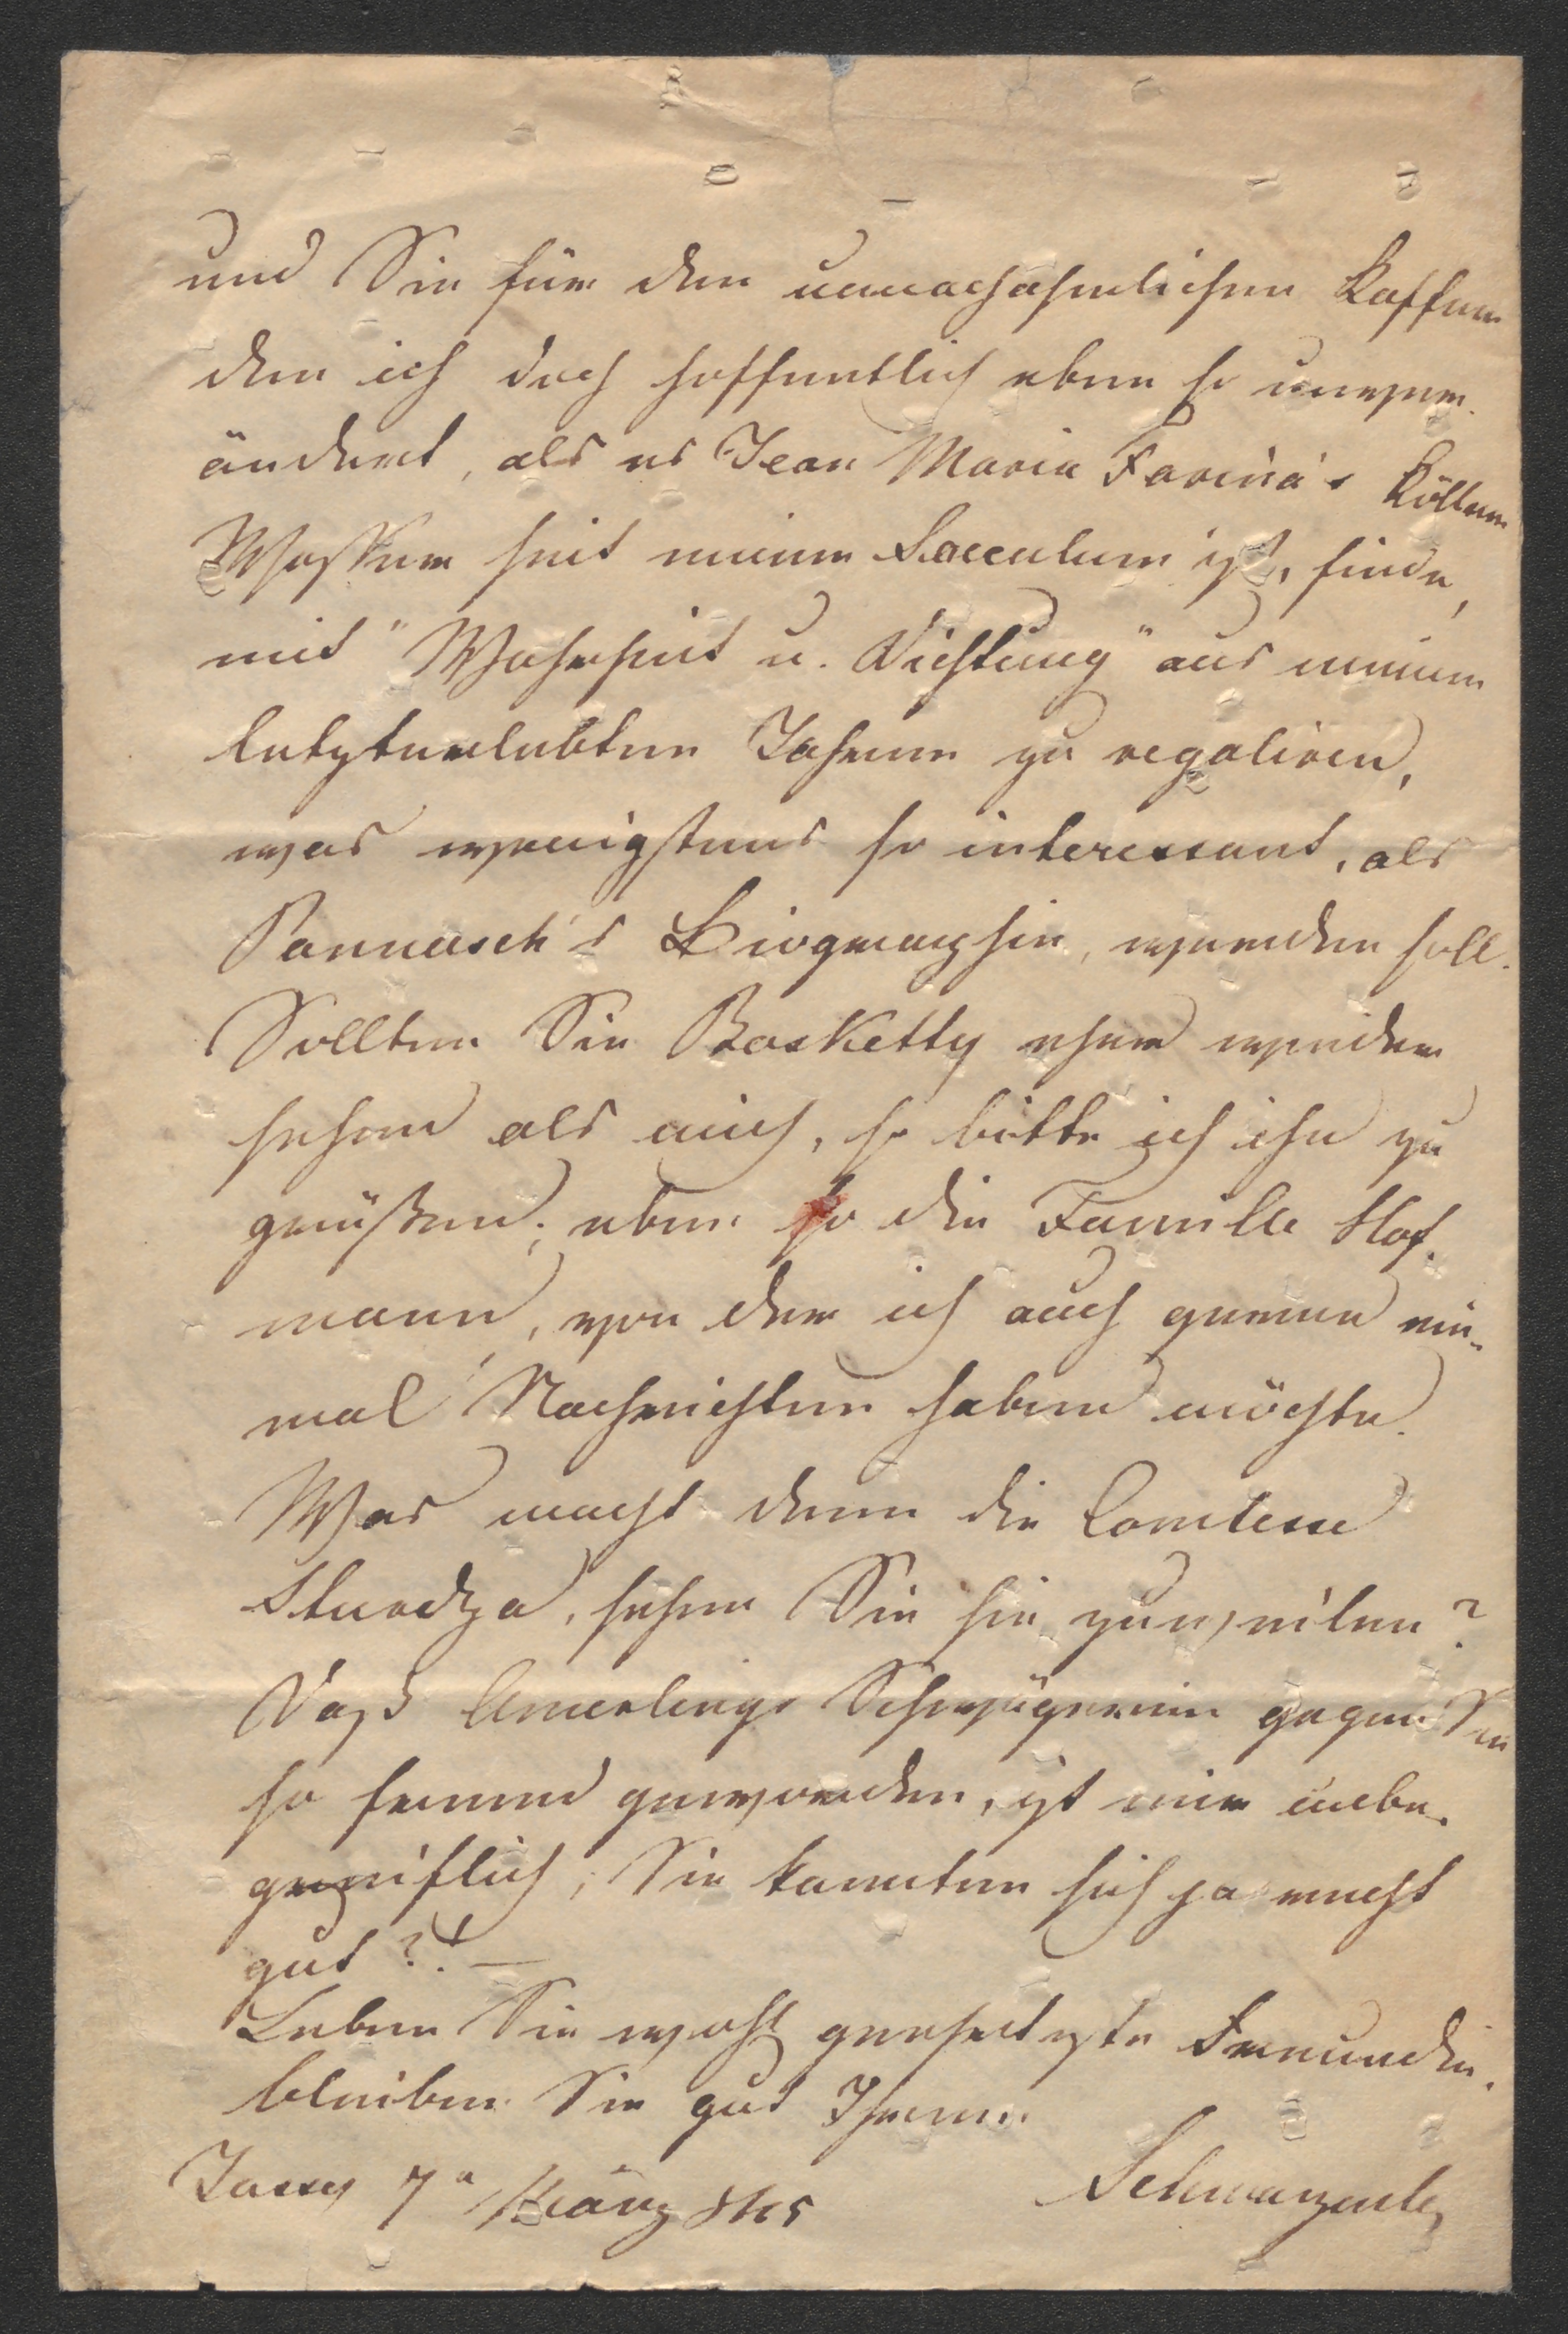 und Sie für den unnachahmlichen Kaffee
den ich doch hoffentlich eben so unver-
ändert, als es Jean Maria Farina's Köllner
Wasser seit einem Saeculum ist, finde,
mit "Wahrheit u. Dichtung" aus meinen
letztverlebten Jahren zu regaliren,
was wenigstens so interessant, als
Pannasch's Biographie, werden soll.
Sollten Sie Basketty eher wieder
sehen als mich, so bitte ich ihn zu
grüßen; eben so die Famille Hof-
mann, von der ich auch gerne ein-
mal Nachrichten haben möchte.
Was macht denn die Comtesse
Sturdza, sehen Sie sie zuweilen?
Daß Amerlings Schwägerin gegen Sie
so fremd geworden, ist mir unbe-
greiflich; Sie kannten sich ja recht
gut?! —
Leben Sie wohl geehrteste Freundin,
bleiben Sie gut Ihrem
Jassy 7n März